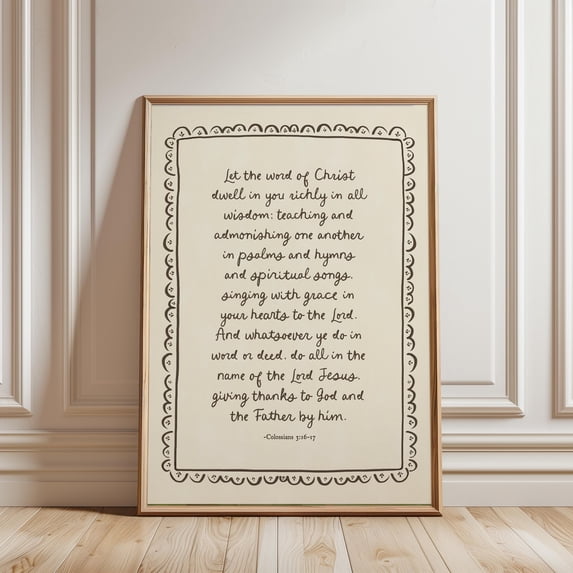 Let the word of Christ
dwell in you richly in all
wisdom; teaching and
admonishing one another
in psalms and hymns
and spiritual songs,
singing with grace in
your hearts to the Lord.
And whatsoever ye do in
word or deed, do all in the
name of the Lord Jesus,
giving thanks to God and
the Father by him.
-Colossians 3:16-17